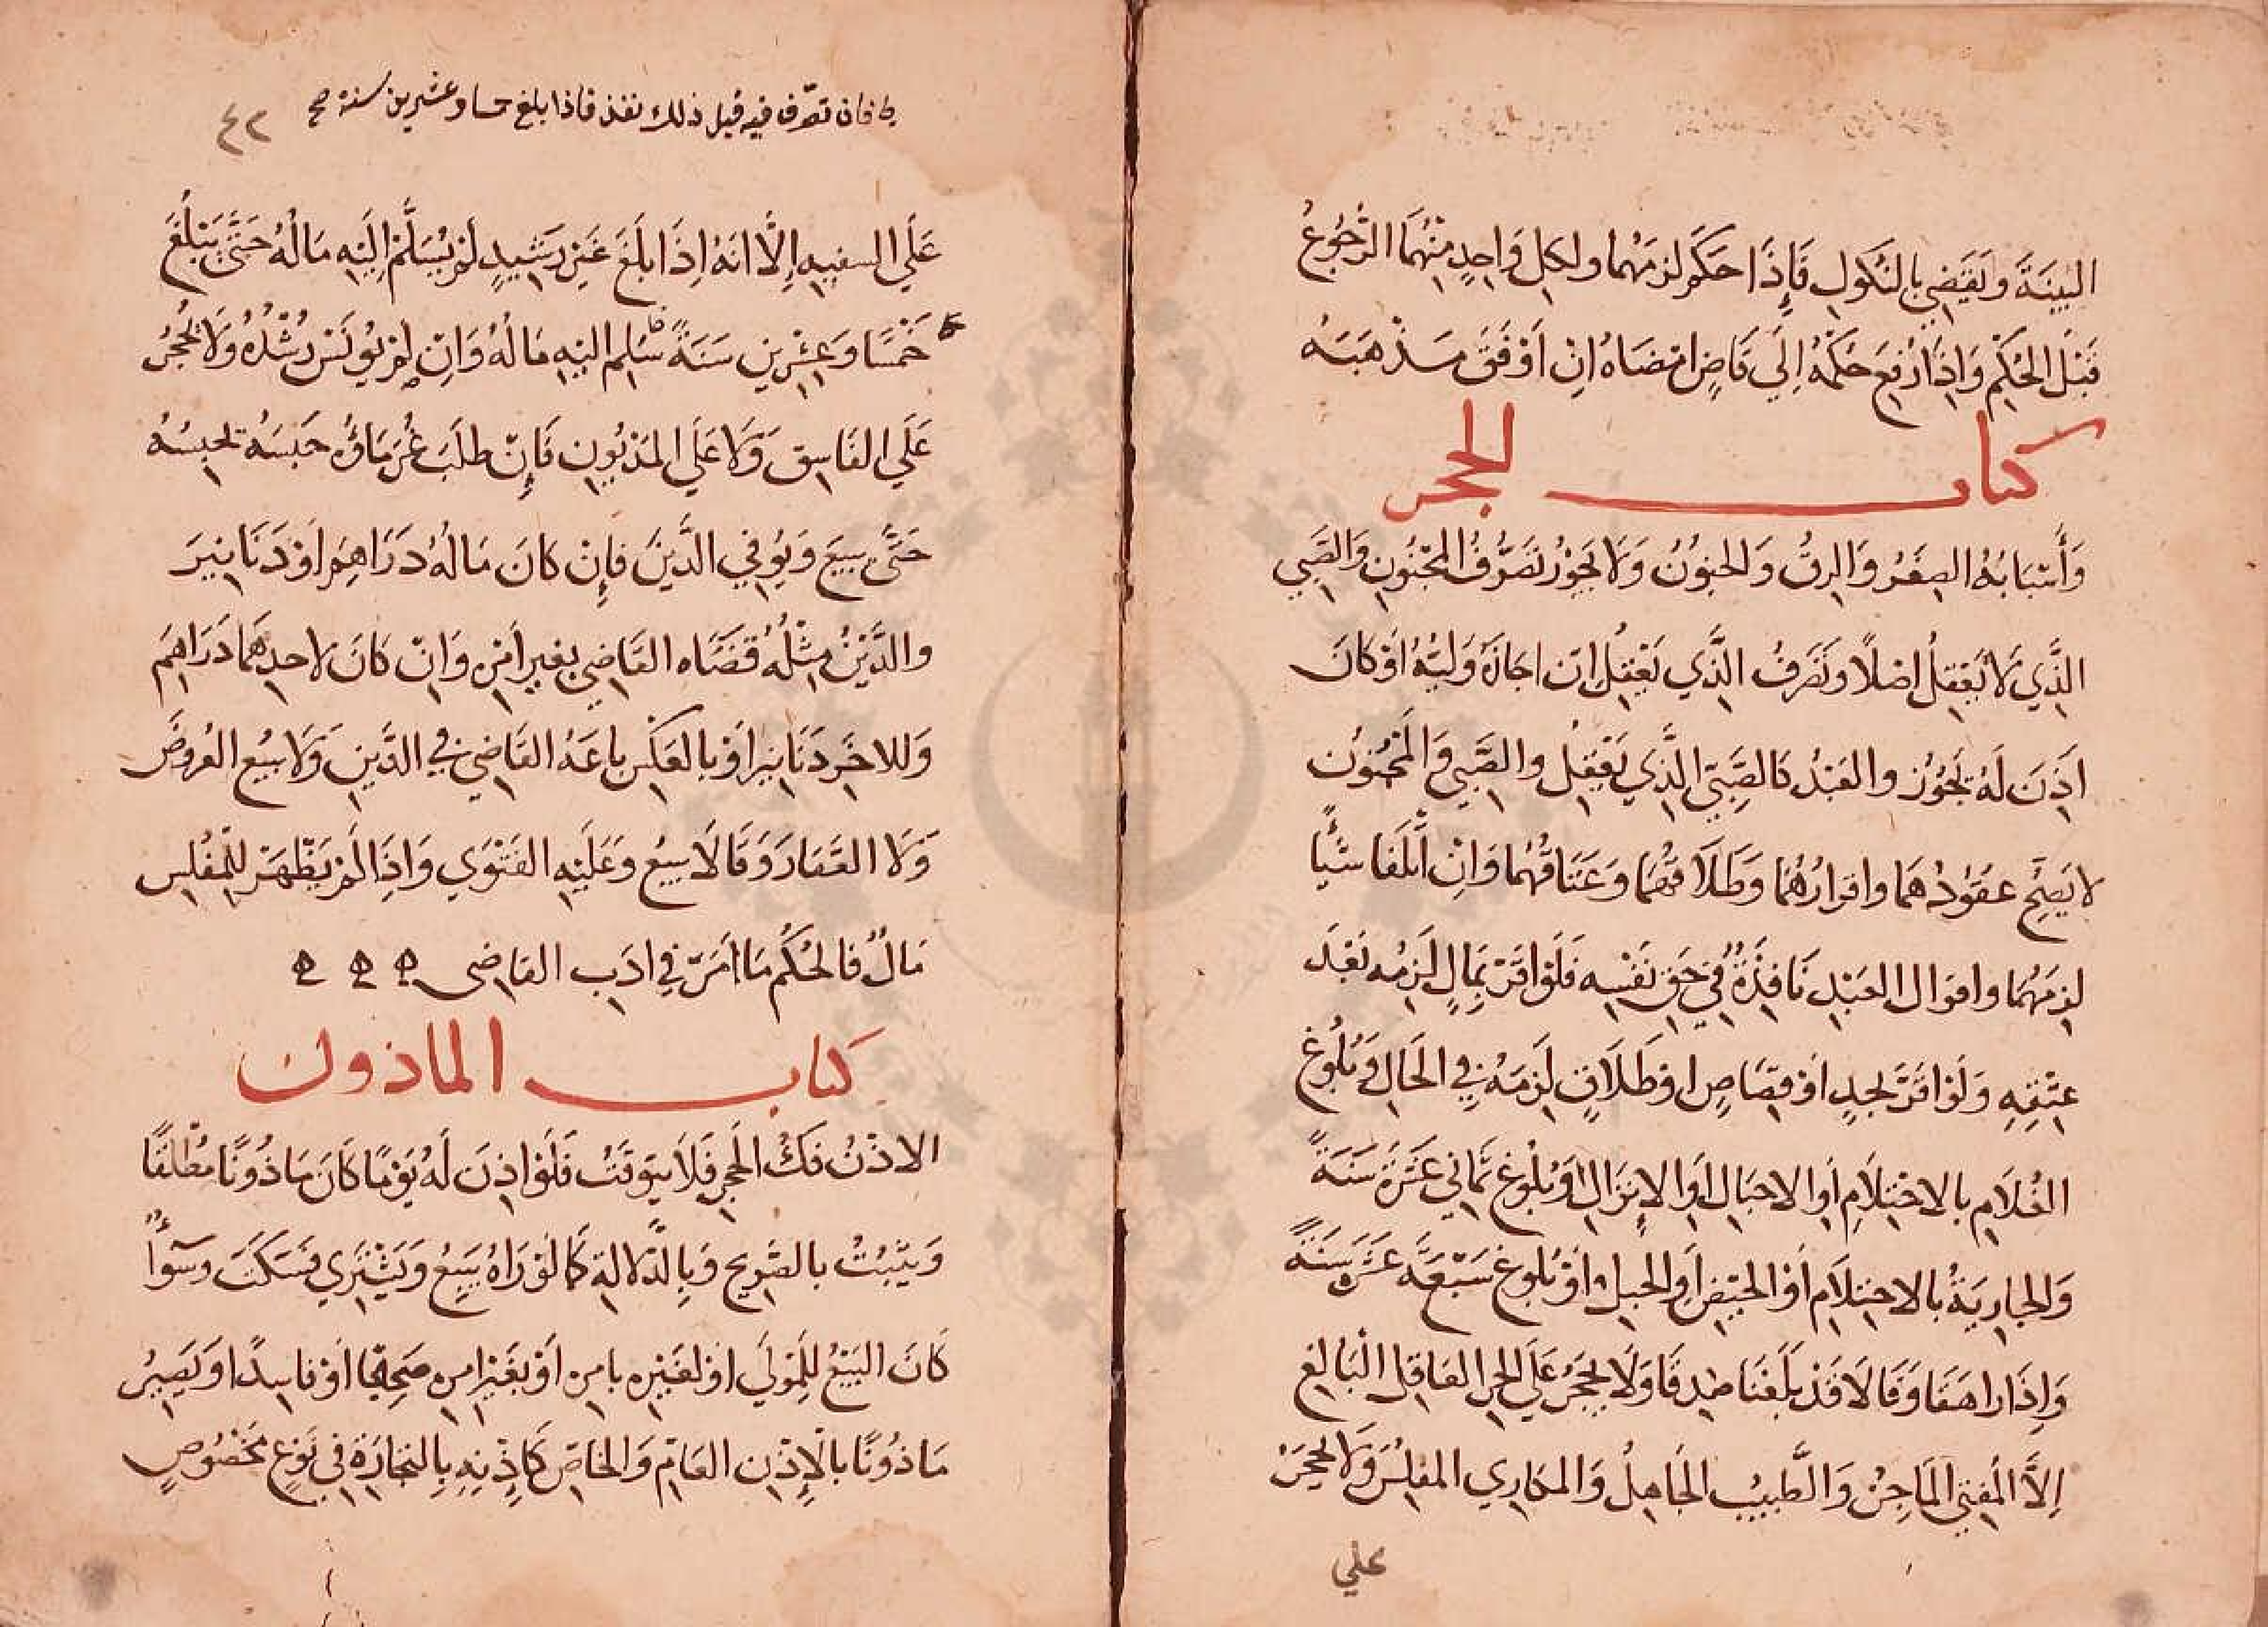 البينة ويقضي بالنكول فإذا حكم لزمهما ولكل واحد منهما الرجوع
قبل الحكم وإذا رفع حكمه إلي قاض امضاه ان اوفق مذهبه
كتاب الحجر
وأسبابه الصغر والرق والجنون ولا يجوز تصرف المجنون والصبي
الذي لا يعقل اصلا وتصرف الذي يعقل ان اجازه وليه أو كان
اذن له يجوز والعبد كالصبي الذي يعقل والصبي والمجنون
لا يصح عقودهما واقرارهما وطلاقهما وعتاقهما وان أتلفا شيأ
لزمهما واقوال العبد نافذة في حق نفسه فلو اقر بمال لزمه بعد
عتقه ولو اقر بحد او قصاص او طلاق لزمه في الحال وبلوغ
الغلام بالاحتلام أو الاحبال أو الإنزال أو بلوغ ثماني عشرة سنة
والجارية بالاحتلام أو الحيض أو الحبل أو بلوغ سبعة عشر سنة
وإذا راهقا وقالا قد بلغنا صدقا ولا يحجر علي الحر العاقل البالغ
إلا المفتي الماجن والطبيب الجاهل والمكاري المفلس ولا يحجر
علي
فان تصرف فيه قبل ذلك نفذ فاذا بلغ خمسا وعشرين سنة صح
٤٢
علي السفيه إلا انه إذا بلغ غير رشيد لم يسلم إليه ماله حتي يبلغ
خمسا وعشرين سنة سلم اليه ماله وان لم يونس رشده ولا يحجر
علي الفاسق ولا علي المديون فإن طلب غرماؤه حبسه يحبسه
حتي يبيع ويوفي الدين فإن كان ماله دراهم او دنانير
والدين مثله قضاه القاضي بغير امره وان كان لاحدهما دراهم
وللاخر دنانير او بالعكس باعه القاضي في الدين ولا يبيع العروض
ولا العقار وقالا يبيع وعليه الفتوي وإذا لم يظهر للمفلس
مال فالحكم ما مر في ادب القاضى
كتاب الماذون
الاذن فك الحجر فلا يتوقت فلو اذن له يوما كان ماذونا مطلقا
ويثبت بالصريح وبالدلالة كما لو راه يبيع ويشتري فسكت وسوأ
كان البيع للمولي او لغيره بامره أو بغير امره صحيحا او فاسدا ويصير
ماذونا بالإذن العام والخاص كاذنه بالتجارة في نوع مخصوص